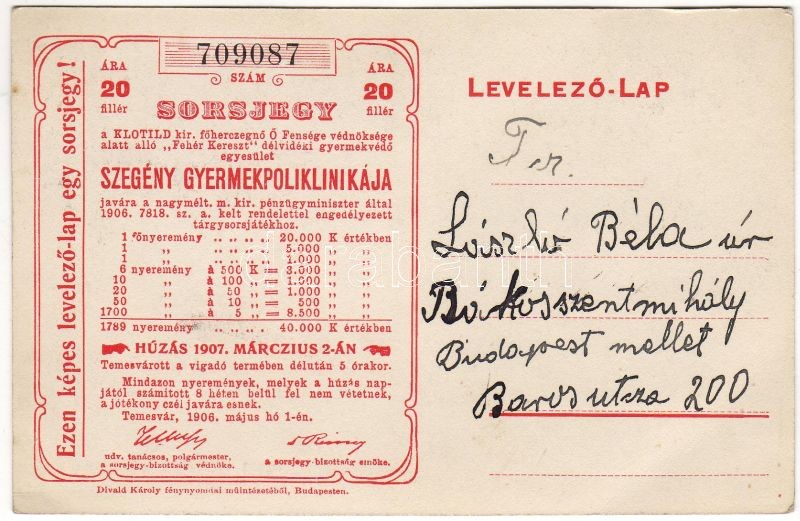 Ezen képes levelező-lap egy sorsjegy!
709087
SZÁM
ÁRA
20
fillér
ÁRA
20
fillér
SORSJEGY
a KLOTILD kir. főherczegnő Ő Fensége védnöksége
alatt álló „Fehér Kereszt" délvidéki gyermekvédő
egyesület
SZEGÉNY GYERMEKPOLIKLINIKÁJA
javára a nagymélt. m. kir. pénzügyminiszter által
1906. 7818. sz. a. kelt rendelettel engedélyezett
tárgysorsjátékhoz.
1 főnyeremény „ „ .. .. 20.000 K értékben
1 „ .. .. .. .. 5.000 „ „
1 „ .. .. .. .. 1.000 „ „
6 nyeremény à 500 K = 3.000 „ „
10 „ à 100 „ = 1.000 „ „
20 „ à 50 „ = 1.000 „ „
50 „ à 10 „ = 500 „ „
1700 „ à 5 „ = 8.500 „ „
1789 nyeremény .. .. .. .. 40.000 K értékben
HÚZÁS 1907. MÁRCZIUS 2-ÁN
Temesvárott a vigadó termében délután 5 órakor.
Mindazon nyeremények, melyek a húzás nap-
jától számított 8 héten belül fel nem vétetnek,
a jótékony czél javára esnek.
Temesvár, 1906. május hó 1-én.
udv. tanácsos, polgármester,
a sorsjegy-bizottság védnöke.
a sorsjegy-bizottság elnöke.
Divald Károly fénynyomdai műintézetéből, Budapesten.
LEVELEZŐ-LAP
László Béla úr
Rákosszentmihály
Budapest mellet
Baros utsza 200